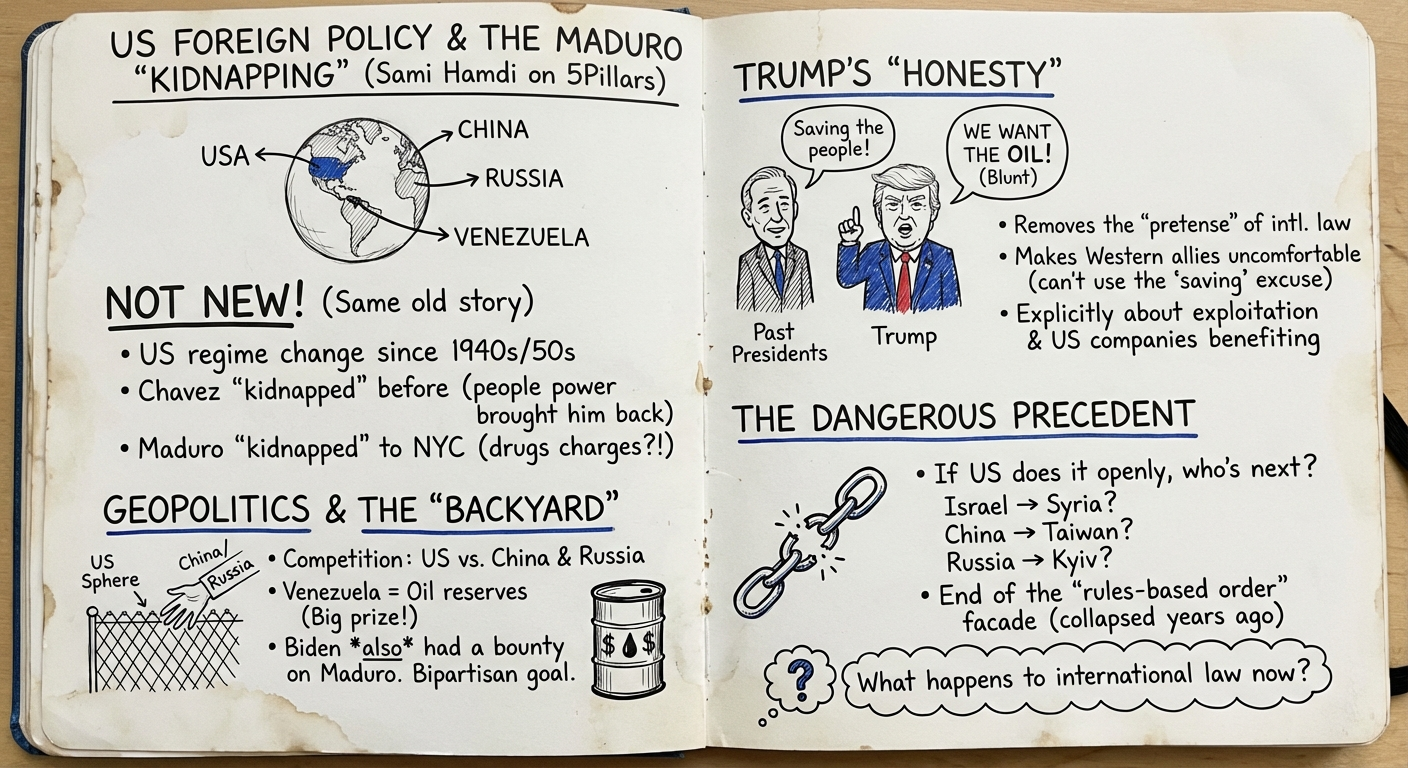 US FOREIGN POLICY & THE MADURO
"KIDNAPPING" (Sami Hamdi on 5Pillars)
USA
CHINA
RUSSIA
VENEZUELA
NOT NEW! (Same old story)
• US regime change since 1940s/50s
• Chavez "kidnapped" before (people power
brought him back)
• Maduro "kidnapped" to NYC (drugs charges?!)
GEOPOLITICS & THE "BACKYARD"
US
Sphere
China/
Russia
• Competition: US vs. China & Russia
• Venezuela = Oil reserves
(Big prize!)
• Biden *also* had a bounty
on Maduro. Bipartisan goal.
$ $
TRUMP'S "HONESTY"
Saving the
people!
WE WANT
THE OIL!
(Blunt)
Past
Presidents
Trump
• Removes the "pretense" of intl. law
• Makes Western allies uncomfortable
(can't use the 'saving' excuse)
• Explicitly about exploitation
& US companies benefiting
THE DANGEROUS PRECEDENT
• If US does it openly, who's next?
Israel → Syria?
China → Taiwan?
Russia → Kyiv?
• End of the "rules-based order"
facade (collapsed years ago)
?
What happens to international law now?